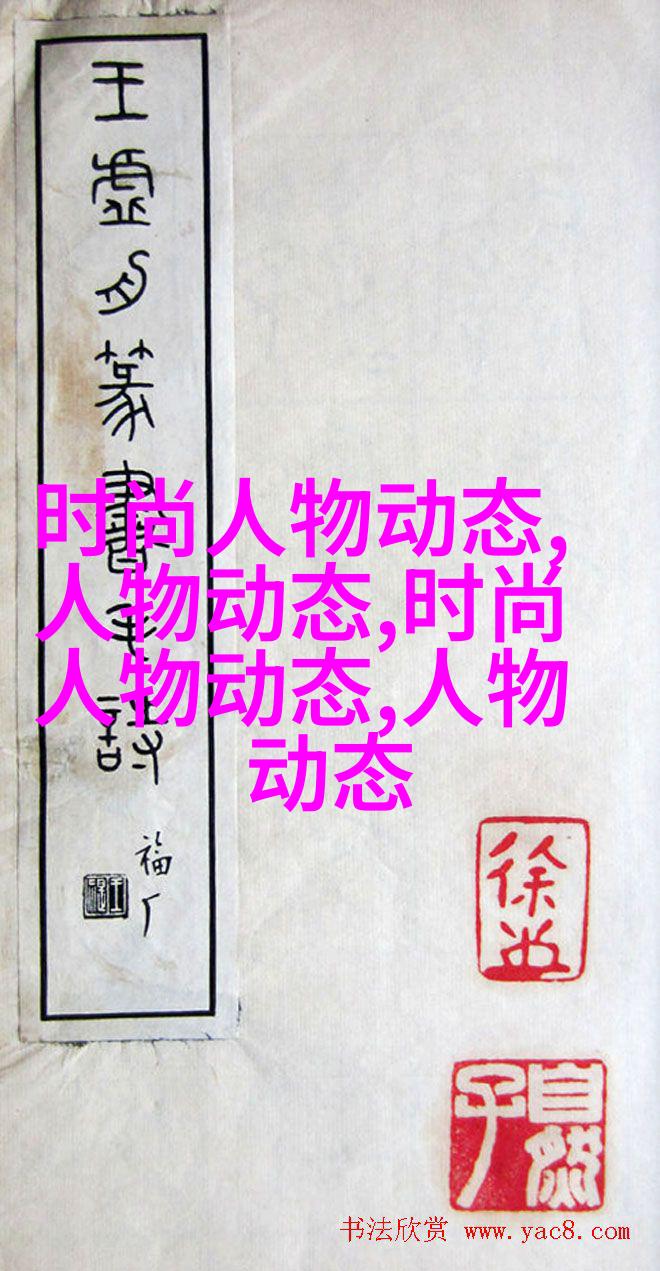 王虚舟篆書毛詩
福厂
时尚人物动态,
人物动态,时尚
人物动态,人物
动态
自然子
书法欣赏 www.yac8.com